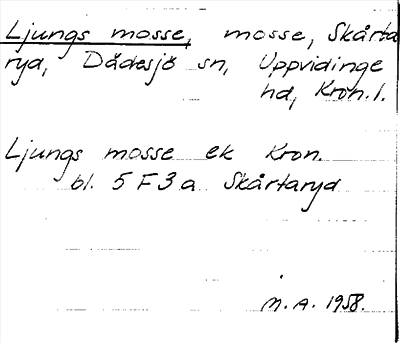 Ljungs mosse, mosse, Skårta
ryd, Dädesjö sn, Uppvidinge
hd, Kron. l.
Ljungs mosse ek Kron.
bl. 5 F 3 a Skårtaryd
M. A. 1958.